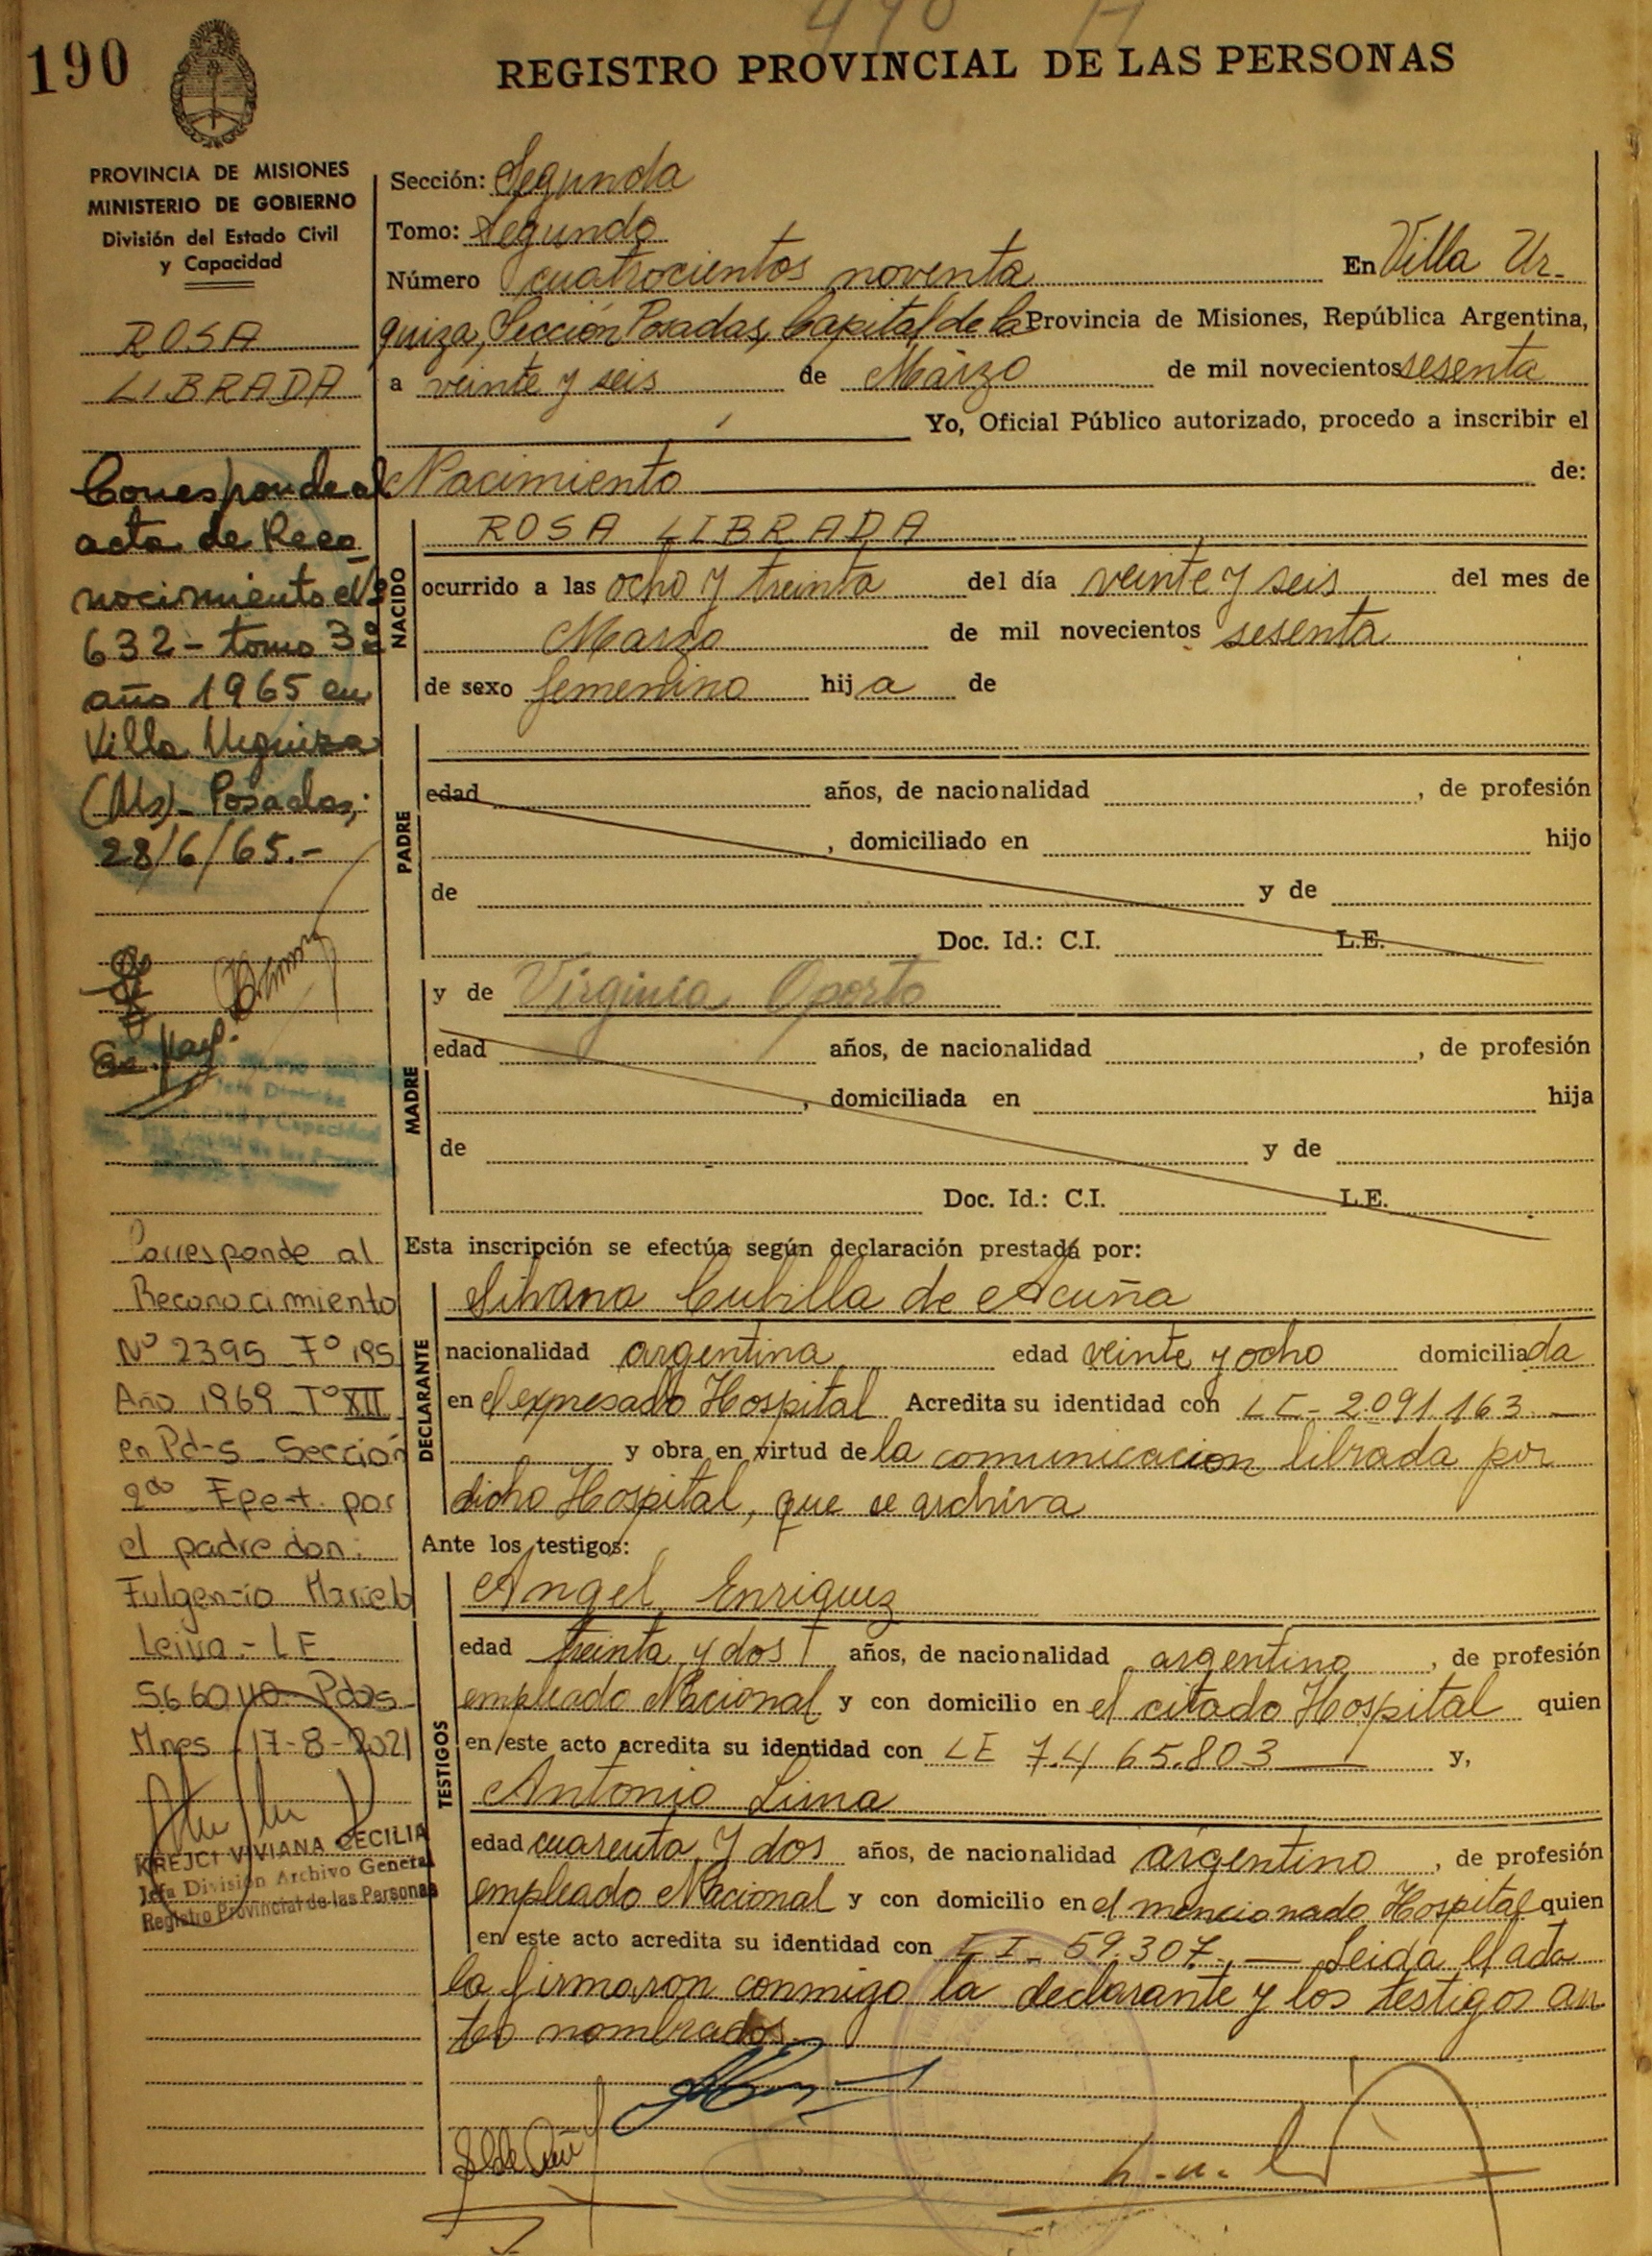 190
REGISTRO PROVINCIAL DE LAS PERSONAS
PROVINCIA DE MISIONES
MINISTERIO DE GOBIERNO
División del Estado Civil
y Capacidad
ROSA
LIBRADA
Corresponde al
acta de Reco
nocimiento Nº
632 - tomo 3º
año 1965 en
Villa Urquiza
(Ms)- Posadas,
28/6/65.-
Jefe División
Civil y Capacidad
Corresponde al
Reconocimiento
Nº 2395 Fº 195
Año 1969 Tº XII
en Pd-s Sección
2da por
el padre don:
Fulgencio Marcelo
Leiva - LE
5660110 Pdas
Mnes 17-8-2021
KREJCI VIVIANA CECILIA
Jefa División Archivo General
Registro Provincial de las Personas
Sección: Segunda
Tomo: Segundo
Número cuatrocientos noventa En Villa Ur-
quiza, Sección Posadas, Capital de la Provincia de Misiones, República Argentina,
a veinte y seis de Marzo de mil novecientos sesenta
Yo, Oficial Público autorizado, procedo a inscribir el
Nacimiento de:
NACIDO
ROSA LIBRADA
ocurrido a las ocho y treinta del día veinte y seis del mes de
Marzo de mil novecientos sesenta
de sexo femenino hija de
PADRE
edad años, de nacionalidad , de profesión
, domiciliado en hijo
de y de
Doc. Id.: C.I. L.E.
MADRE
y de Virginia Oporto
edad años, de nacionalidad , de profesión
, domiciliada en hija
de y de
Doc. Id.: C.I. L.E.
Esta inscripción se efectúa según declaración prestada por:
DECLARANTE
Silvana Cubilla de Acuña
nacionalidad argentina edad veinte y ocho domiciliada
en el expresado Hospital Acredita su identidad con LC - 2.091.163 -
y obra en virtud de la comunicacion librada por
dicho Hospital, que se archiva
Ante los testigos:
TESTIGOS
Angel Enriquez
edad treinta y dos años, de nacionalidad argentino, de profesión
empleado Nacional y con domicilio en el citado Hospital quien
en este acto acredita su identidad con LE 7.465.803 y,
Antonio Lima
edad cuarenta y dos años, de nacionalidad argentino, de profesión
empleado Nacional y con domicilio en el mencionado Hospital quien
en este acto acredita su identidad con 59.307. - Leida el acta
la firmaron conmigo la declarante y los testigos an
tes nombrados